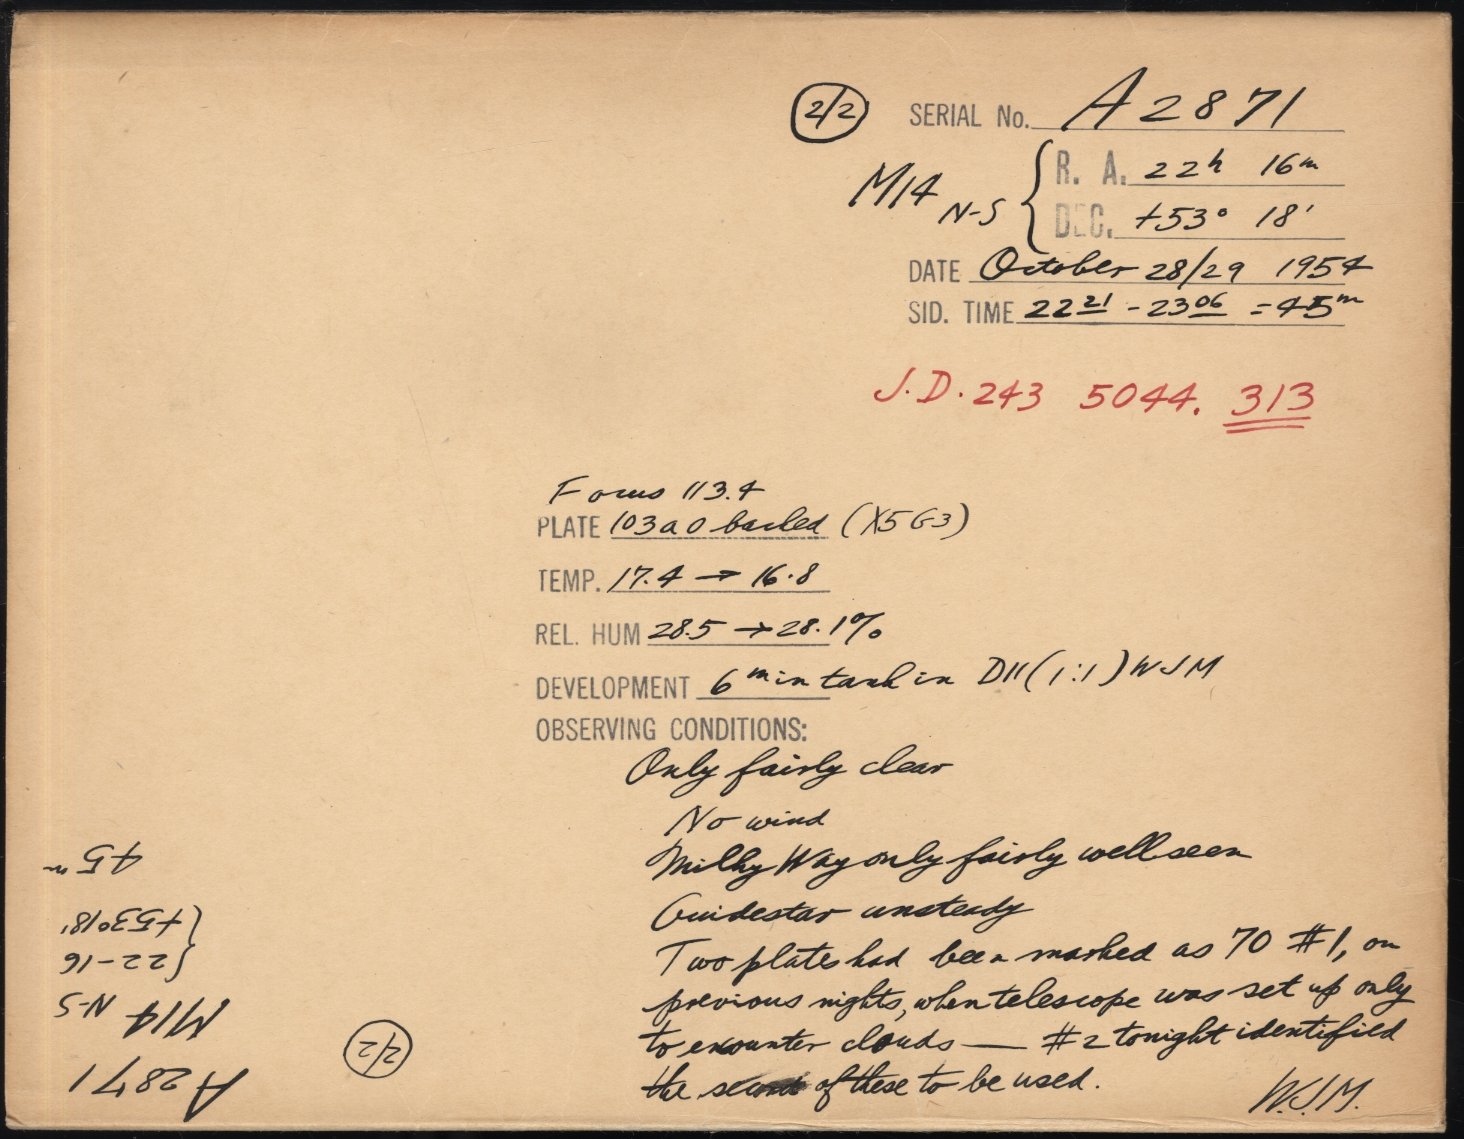 2/2 SERIAL No. A2871
M14 N-S { R. A. 22h 16m
DEC. +53° 18'
DATE October 28/29 1954
SID. TIME 22 21 - 23 06 = 45m
J.D. 243 5044. 313
Focus 113.4
PLATE 103a0 backed (X5G3)
TEMP. 17.4 → 16.8
REL. HUM 28.5 → 28.1%
DEVELOPMENT 6 min tank in D11 (1:1) WJM
OBSERVING CONDITIONS:
Only fairly clear
No wind
Milky Way only fairly well seen
Guidestar unsteady
Two plates had been marked as 70 #1, on
previous nights, when telescope was set up only
to encounter clouds — #2 tonight identified
the second of these to be used.
W.J.M.
A2871
2/2
M14 N-S
{ 22-16
+53°18'
45m